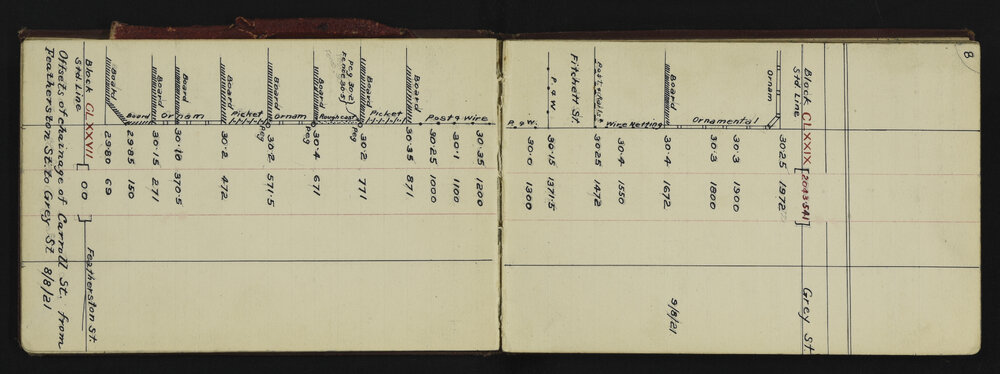 8
Block CLXXIX [2043·541] Grey St
Std Line
Ornam 3025 1972
Ornamental 30·3 1900
30·3 1800
Board 30·4 1672 9/8/21
Wire Netting 30·4 1550
3025 1472
Fitchett St.
P. & W. 30·15 1371·5
P. & W. 30·0 1300
30·35 1200
Post & Wire 30·1 1100
3025 1000
Board 30·35 871
Picket
Board 30·2 771
Peg 30·2)
Fence 30·5)
Rough cast
Board 30·4 671
Peg
Ornam
Board 30·2 571·5
Peg
Picket
Board 30·2 472
Ornam
Board 30·18 370·5
Board 30·15 271
Board 29·85 150
Board 29·80 69
Block CLXXVII [ 00 ] Featherston St.
Std Line
Offsets of chainage of Carroll St. from
Featherston St. to Grey St 8/8/21